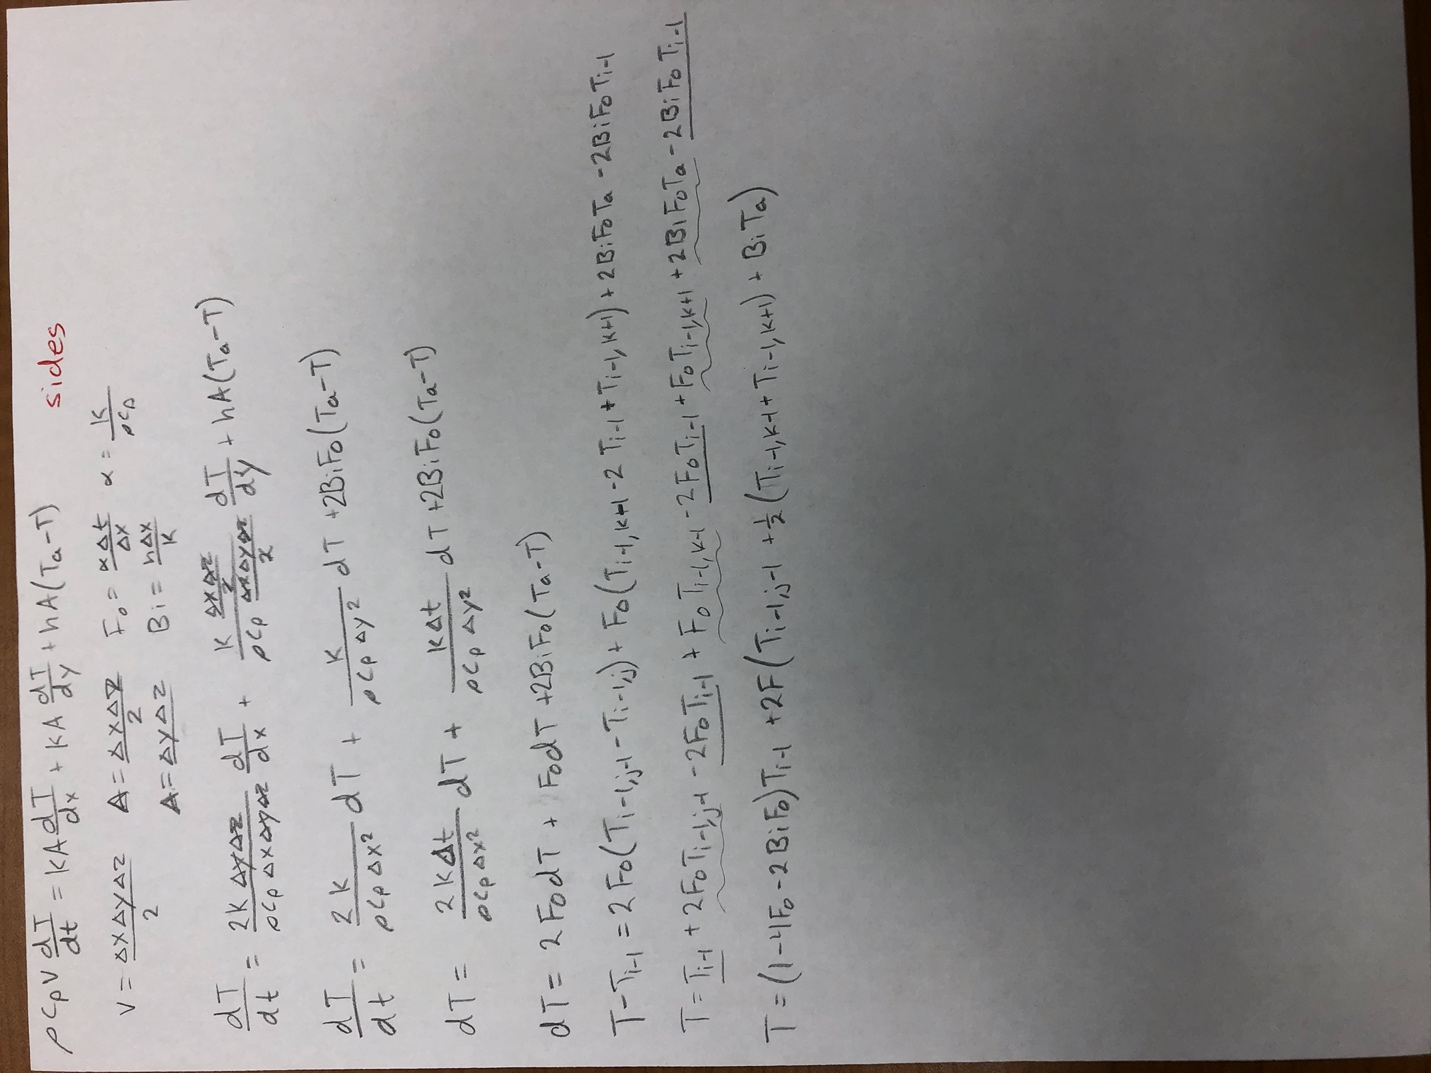 ρCpV dT/dt = KA dT/dx + KA dT/dy + hA(Ta-T) sides
V = ΔxΔyΔz/2 A = ΔxΔz/2 Fo = αΔt/Δx α = K/ρCp
A = ΔyΔz Bi = hΔx/K
dT/dt = 2KΔyΔz/ρCpΔxΔyΔz dT/dx + K ΔxΔz/2 / ρCp ΔxΔyΔz/2 dT/dy + hA(Ta-T)
dT/dt = 2K/ρCpΔx² dT + K/ρCpΔy² dT + 2BiFo(Ta-T)
dT = 2KΔt/ρCpΔx² dT + KΔt/ρCpΔy² dT + 2BiFo(Ta-T)
dT = 2FodT + FodT + 2BiFo(Ta-T)
T-Ti-1 = 2Fo(Ti-1,j-1 - Ti-1,j) + Fo(Ti-1,k+1 - 2Ti-1 + Ti-1,k+1) + 2BiFoTa - 2BiFoTi-1
T = Ti-1 + 2FoTi-1,j-1 - 2FoTi-1 + FoTi-1,k-1 - 2FoTi-1 + FoTi-1,k+1 + 2BiFoTa - 2BiFoTi-1
T = (1-4Fo-2BiFo)Ti-1 + 2F(Ti-1,j-1 + ½(Ti-1,k-1 + Ti-1,k+1) + BiTa)